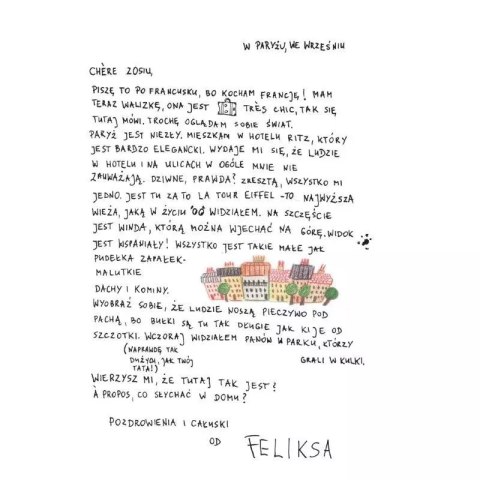 W PARYŻU, WE WRZEŚNIU
CHÈRE ZOSIU,
PISZĘ TO PO FRANCUSKU, BO KOCHAM FRANCJĘ! MAM
TERAZ WALIZKĘ, ONA JEST TRÈS CHIC, TAK SIĘ
TUTAJ MÓWI. TROCHĘ OGLĄDAM SOBIE ŚWIAT.
PARYŻ JEST NIEZŁY. MIESZKAM W HOTELU RITZ, KTÓRY
JEST BARDZO ELEGANCKI. WYDAJE MI SIĘ, ŻE LUDZIE
W HOTELU I NA ULICACH W OGÓLE MNIE NIE
ZAUWAŻAJĄ. DZIWNE, PRAWDA? ZRESZTĄ, WSZYSTKO MI
JEDNO. JEST TU ZA TO LA TOUR EIFFEL - TO NAJWYŻSZA
WIEŻA, JAKĄ W ŻYCIU WIDZIAŁEM. NA SZCZĘŚCIE
JEST WINDA, KTÓRĄ MOŻNA WJECHAĆ NA GÓRĘ. WIDOK
JEST WSPANIAŁY! WSZYSTKO JEST TAKIE MAŁE JAK
PUDEŁKA ZAPAŁEK-
MALUTKIE
DACHY I KOMINY.
WYOBRAŹ SOBIE, ŻE LUDZIE NOSZĄ PIECZYWO POD
PACHĄ, BO BUŁKI SĄ TU TAK DŁUGIE JAK KIJE OD
SZCZOTKI. WCZORAJ WIDZIAŁEM PANÓW W PARKU, KTÓRZY
(NAPRAWDĘ TAK
DUŻYCH, JAK TWÓJ
TATA!)
GRALI W KULKI.
WIERZYSZ MI, ŻE TUTAJ TAK JEST?
À PROPOS, CO SŁYCHAĆ W DOMU?
POZDROWIENIA I CAŁUSKI
OD
FELIKSA